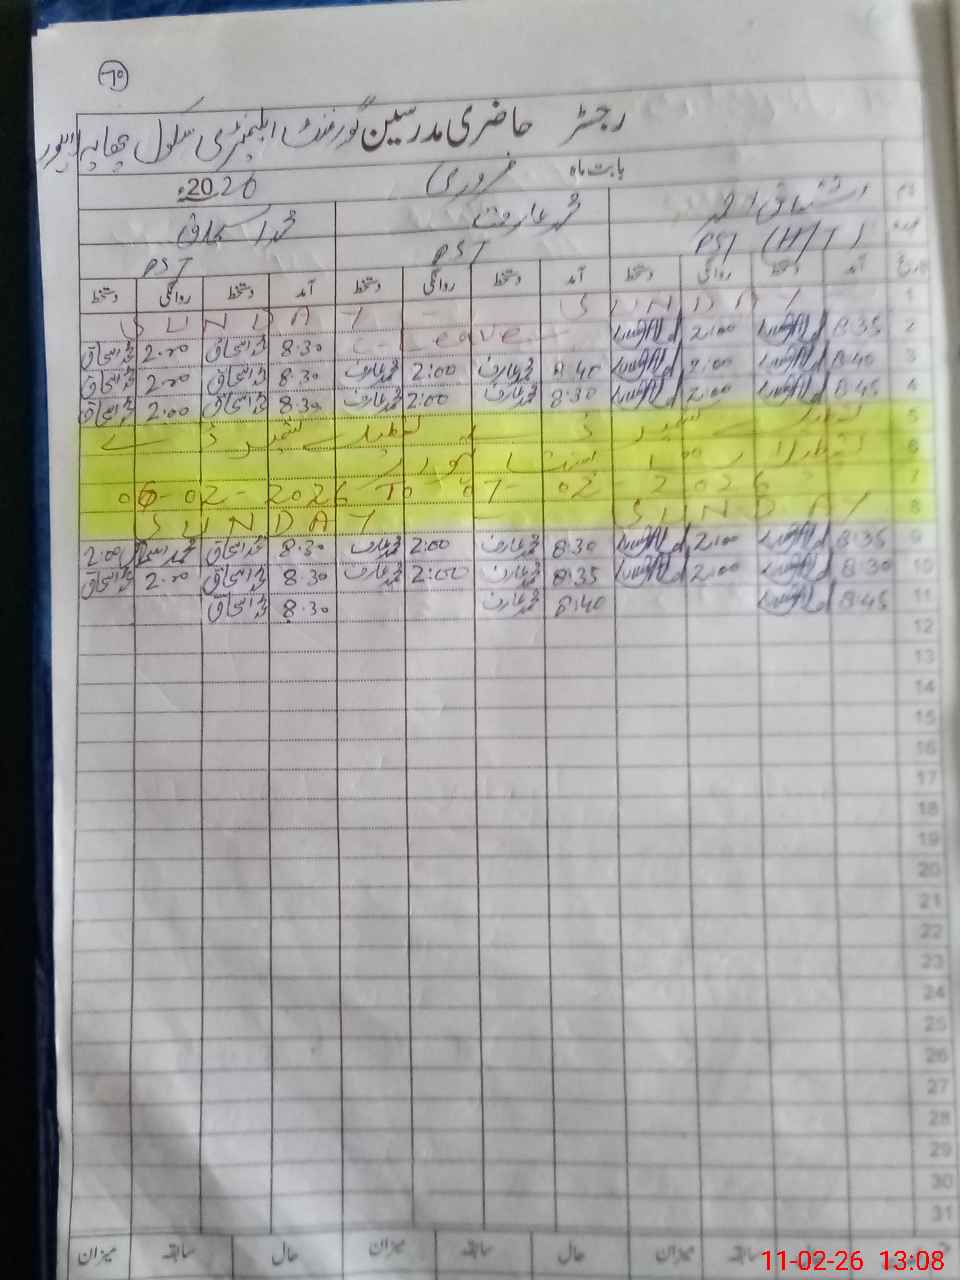 رجسٹر حاضری مدرسین گورنمنٹ ایلیمنٹری سکول
بابت ماہ فروری 2026ء
نام اشتیاق احمد محمد عارف محمد اسحاق
عہدہ PST (H/T) PST PST
تاریخ آمد دستخط روانگی دستخط آمد دستخط روانگی دستخط آمد دستخط روانگی دستخط
1 SUNDAY SUNDAY
2 8:35 2:00 Leave 8:30 محمد اسحاق 2:00 محمد اسحاق
3 8:40 2:00 8:40 محمد عارف 2:00 محمد عارف 8:30 محمد اسحاق 2:00 محمد اسحاق
4 8:45 2:00 8:30 محمد عارف 2:00 محمد عارف 8:30 محمد اسحاق 2:00 محمد اسحاق
5 تعطیل کشمیر ڈے تعطیل کشمیر ڈے
6
7 06-02-2026 To 07-02-2026
8 SUNDAY SUNDAY
9 8:35 2:00 8:30 محمد عارف 2:00 محمد عارف 8:30 محمد اسحاق 2:00 محمد اسحاق
10 8:30 2:00 8:35 محمد عارف 2:00 محمد عارف 8:30 محمد اسحاق 2:00 محمد اسحاق
11 8:45 8:40 محمد عارف 8:30 محمد اسحاق
12
13
14
15
16
17
18
19
20
21
22
23
24
25
26
27
28
29
30
31
حال سابقہ میزان حال سابقہ میزان حال سابقہ میزان
11-02-26 13:08